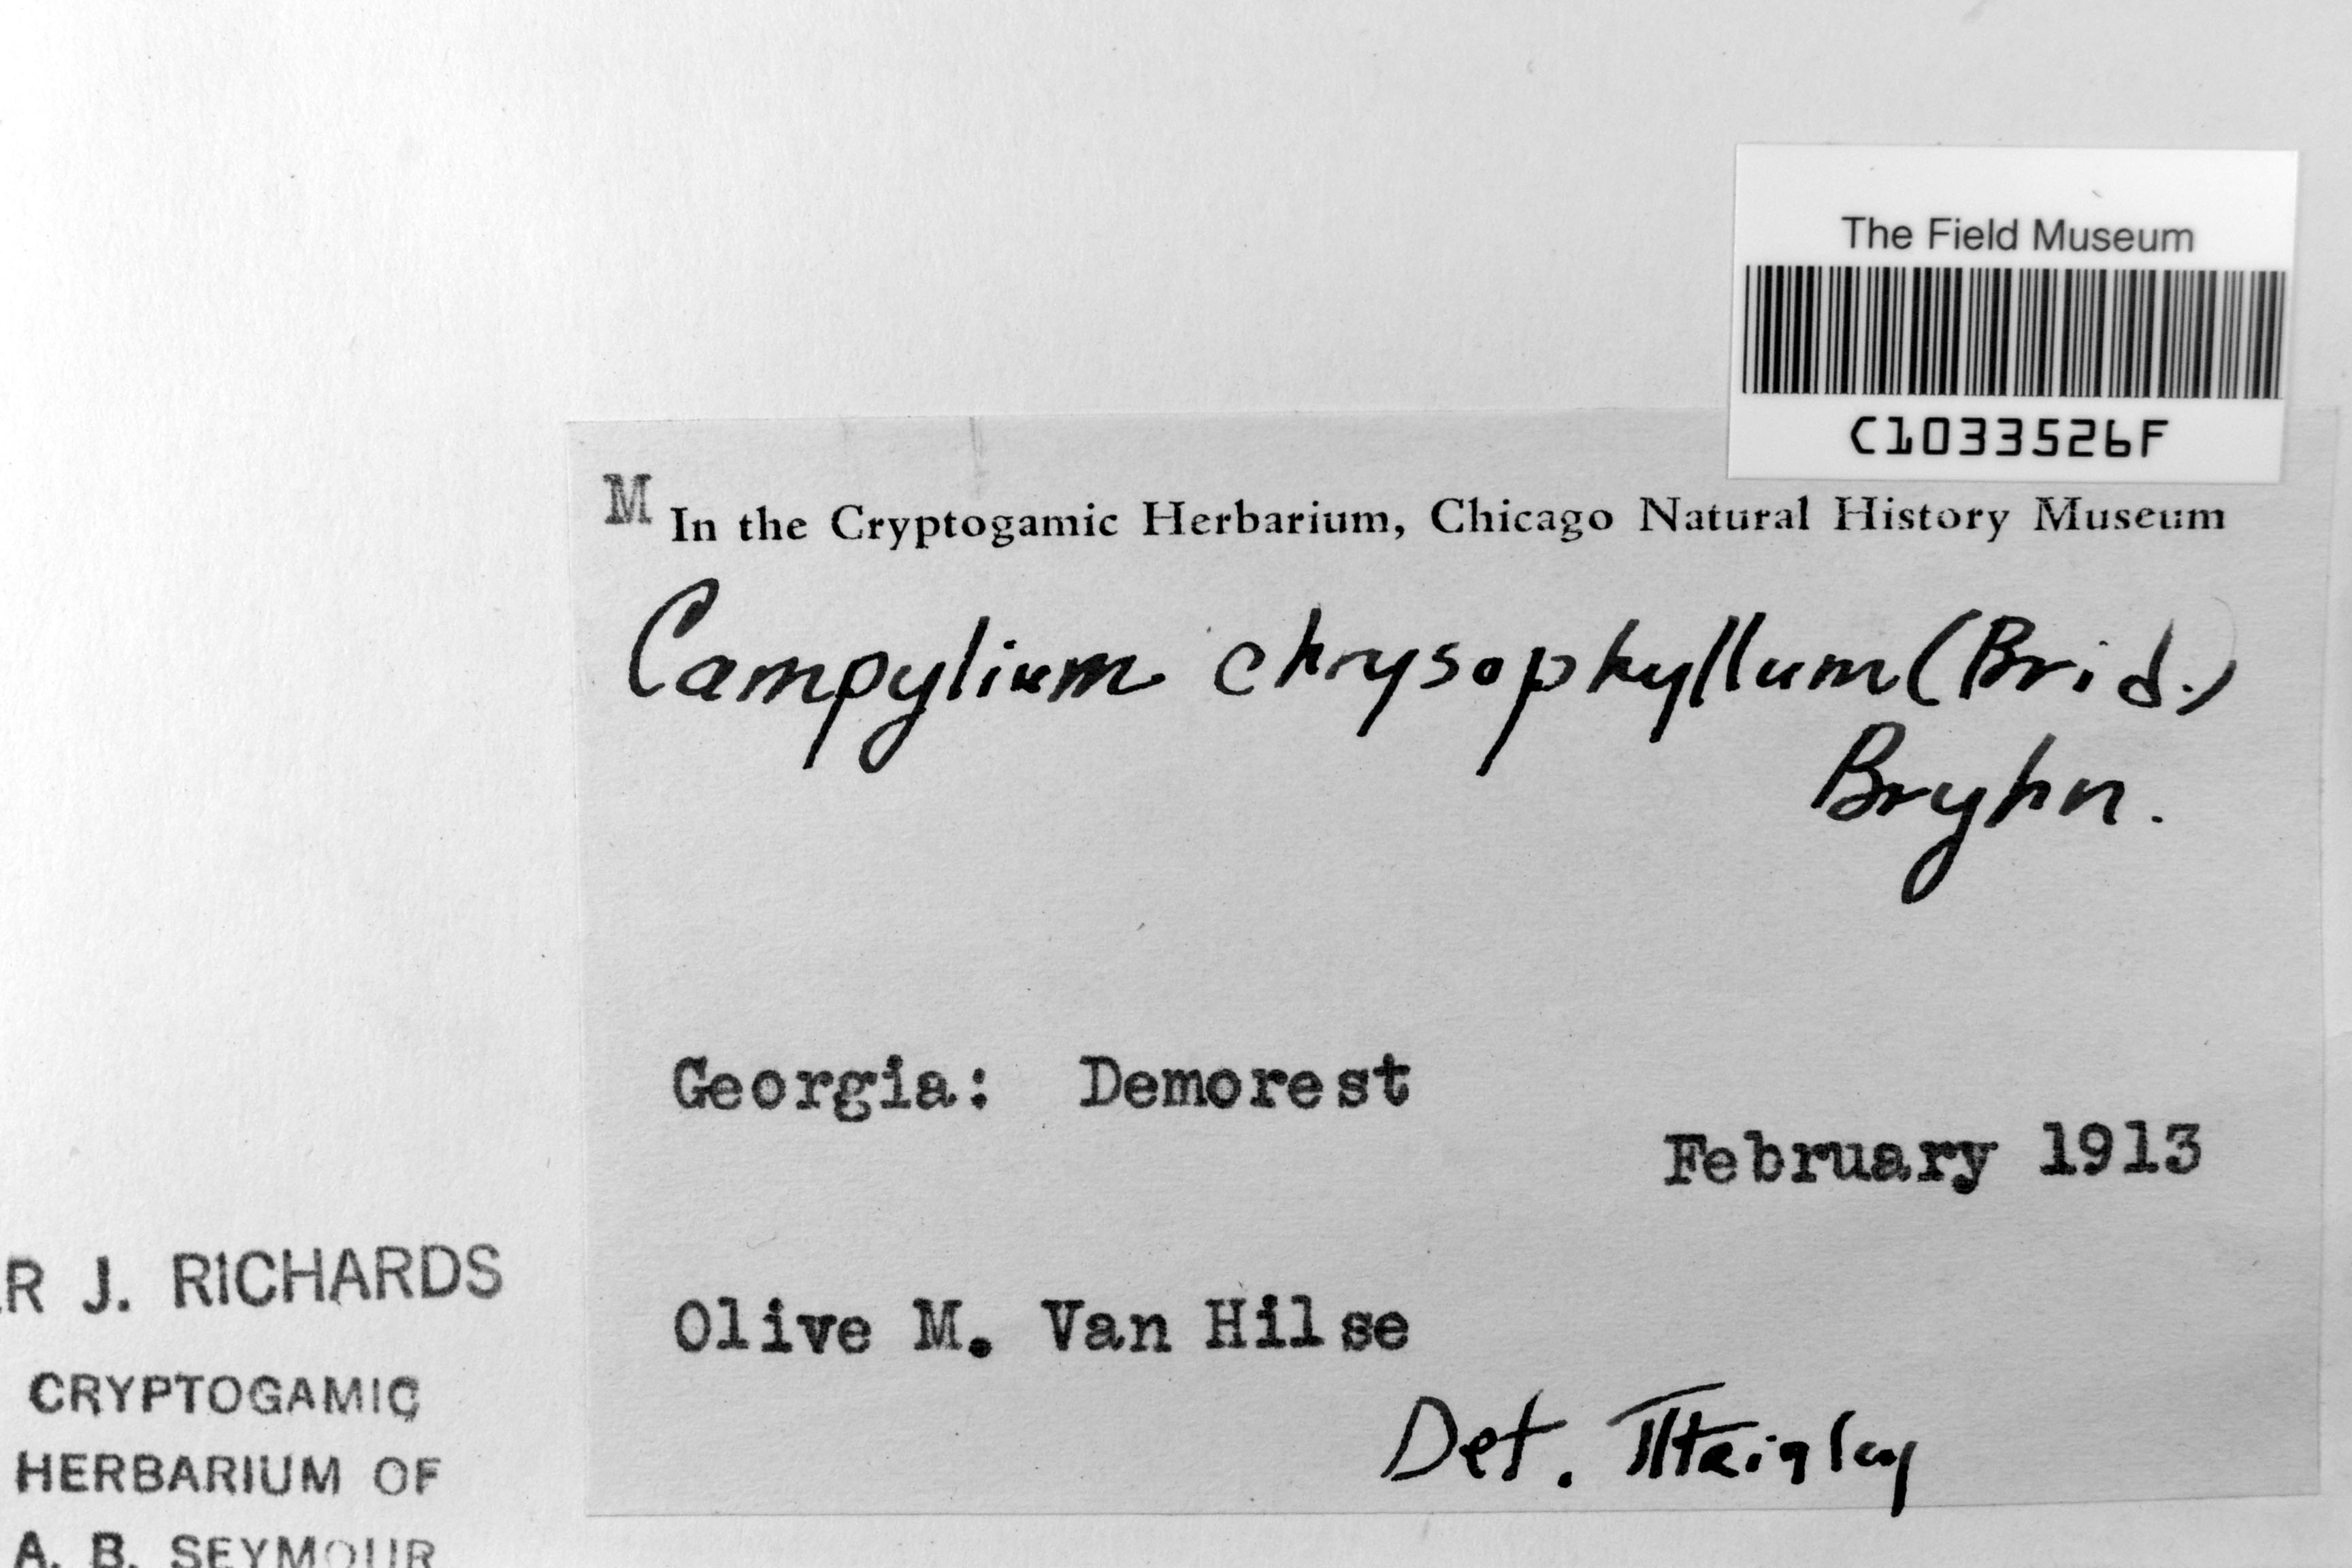 The Field Museum
C1033526F
M In the Cryptogamic Herbarium, Chicago Natural History Museum
Campylium chrysophyllum (Brid.)
Bryhn.
Georgia: Demorest
February 1913
Olive M. Van Hilse
Det.
R J. RICHARDS
CRYPTOGAMIC
HERBARIUM OF
A. B. SEYMOUR